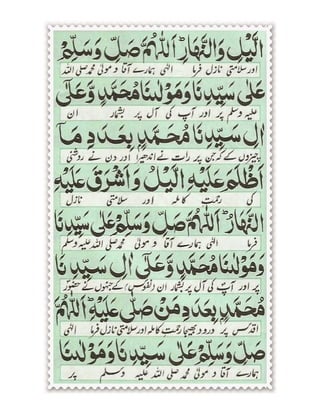 الَّيْلُ وَالنَّهَارُ اَللّٰهُمَّ صَلِّ وَسَلِّمْ
اور سلامتی نازل فرما الٰہی ہمارے آقا و مولیٰ محمد صلی اللہ
عَلٰى سَيِّدِنَا وَمَوْلٰنَا مُحَمَّدٍ وَّعَلٰى
علیہ وسلم پر اور آپ کی آل پر بشمار ان
اٰلِ سَيِّدِنَا مُحَمَّدٍ بِعَدَدِ مَا
چیزوں کے کہ جن پر رات نے اندھیرا اور دن نے روشنی
اَظْلَمَ عَلَيْهِ الَّيْلُ وَاَشْرَقَ عَلَيْهِ
کی رحمت کاملہ اور سلامتی نازل
النَّهَارُ اَللّٰهُمَّ صَلِّ وَسَلِّمْ عَلٰى سَيِّدِنَا
فرما الٰہی ہمارے آقا و مولیٰ محمد صلی اللہ علیہ وسلم
وَمَوْلٰنَا مُحَمَّدٍ وَّعَلٰى اٰلِ سَيِّدِنَا
پر اور آپ کی آل پر بشمار ان (والنفوس) کے جنہوں نے حضور
مُحَمَّدٍ بِعَدَدِ مَنْ صَلّٰى عَلَيْهِ اَللّٰهُمَّ
اقدس پر درود بھیجا رحمت کاملہ اور سلامتی نازل فرما الٰہی
صَلِّ وَسَلِّمْ عَلٰى سَيِّدِنَا وَمَوْلٰنَا
ہمارے آقا و مولیٰ محمد صلی اللہ علیہ وسلم پر